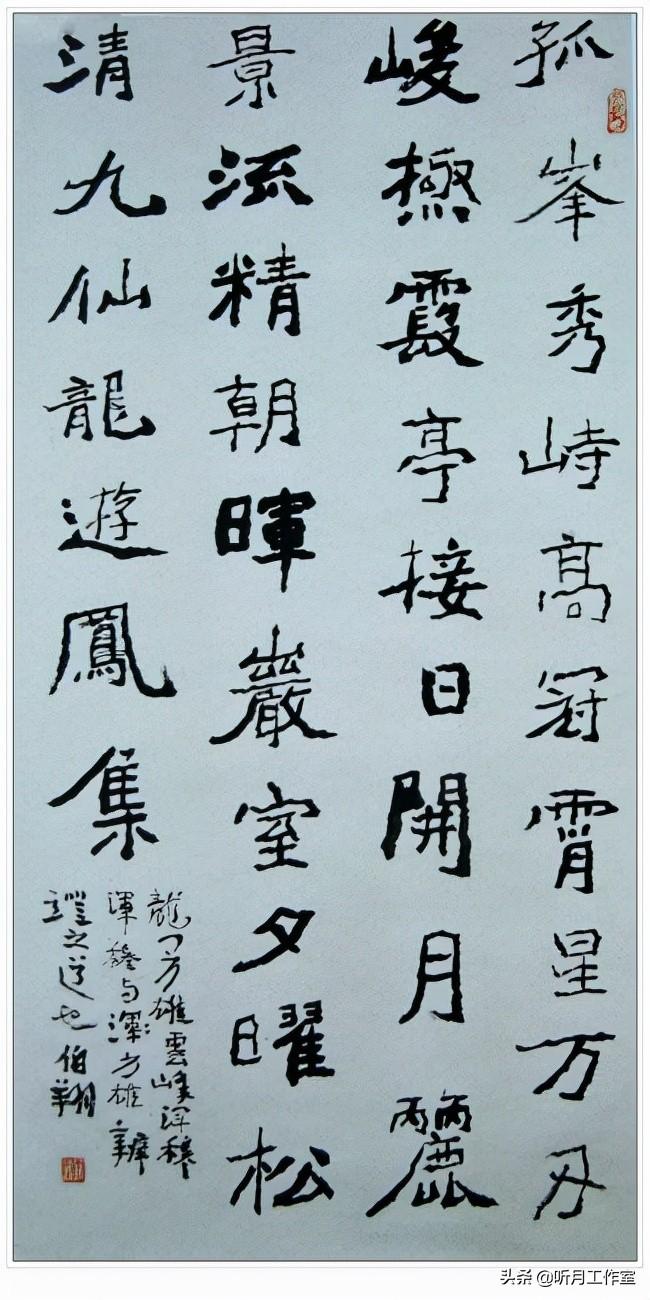 孤峯秀峙高冠霄星万刃
峻極霞亭接日開月麗
景流精朝暉巖室夕曜松
清九仙龍遊鳳集
龍门方雄雲峰渾穆
渾穆与方雄辯
證之道也伯翔
头条 @听月工作室